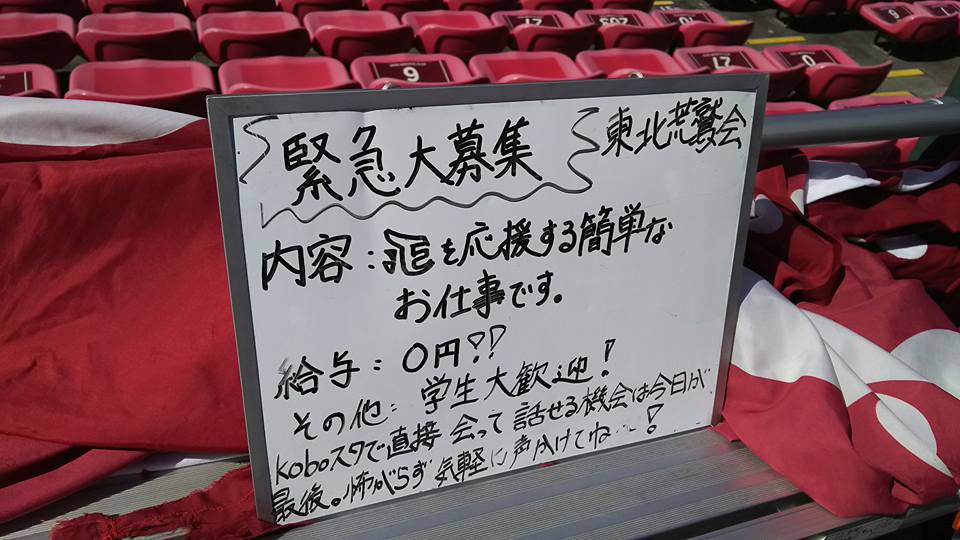 緊急大募集
東北荒鷲会
内容：を応援する簡単な
お仕事です。
給与：0円!?
その他：学生大歓迎！
koboスタで直接会って話せる機会は今日が
最後。怖がらず気軽に声かけてね…！